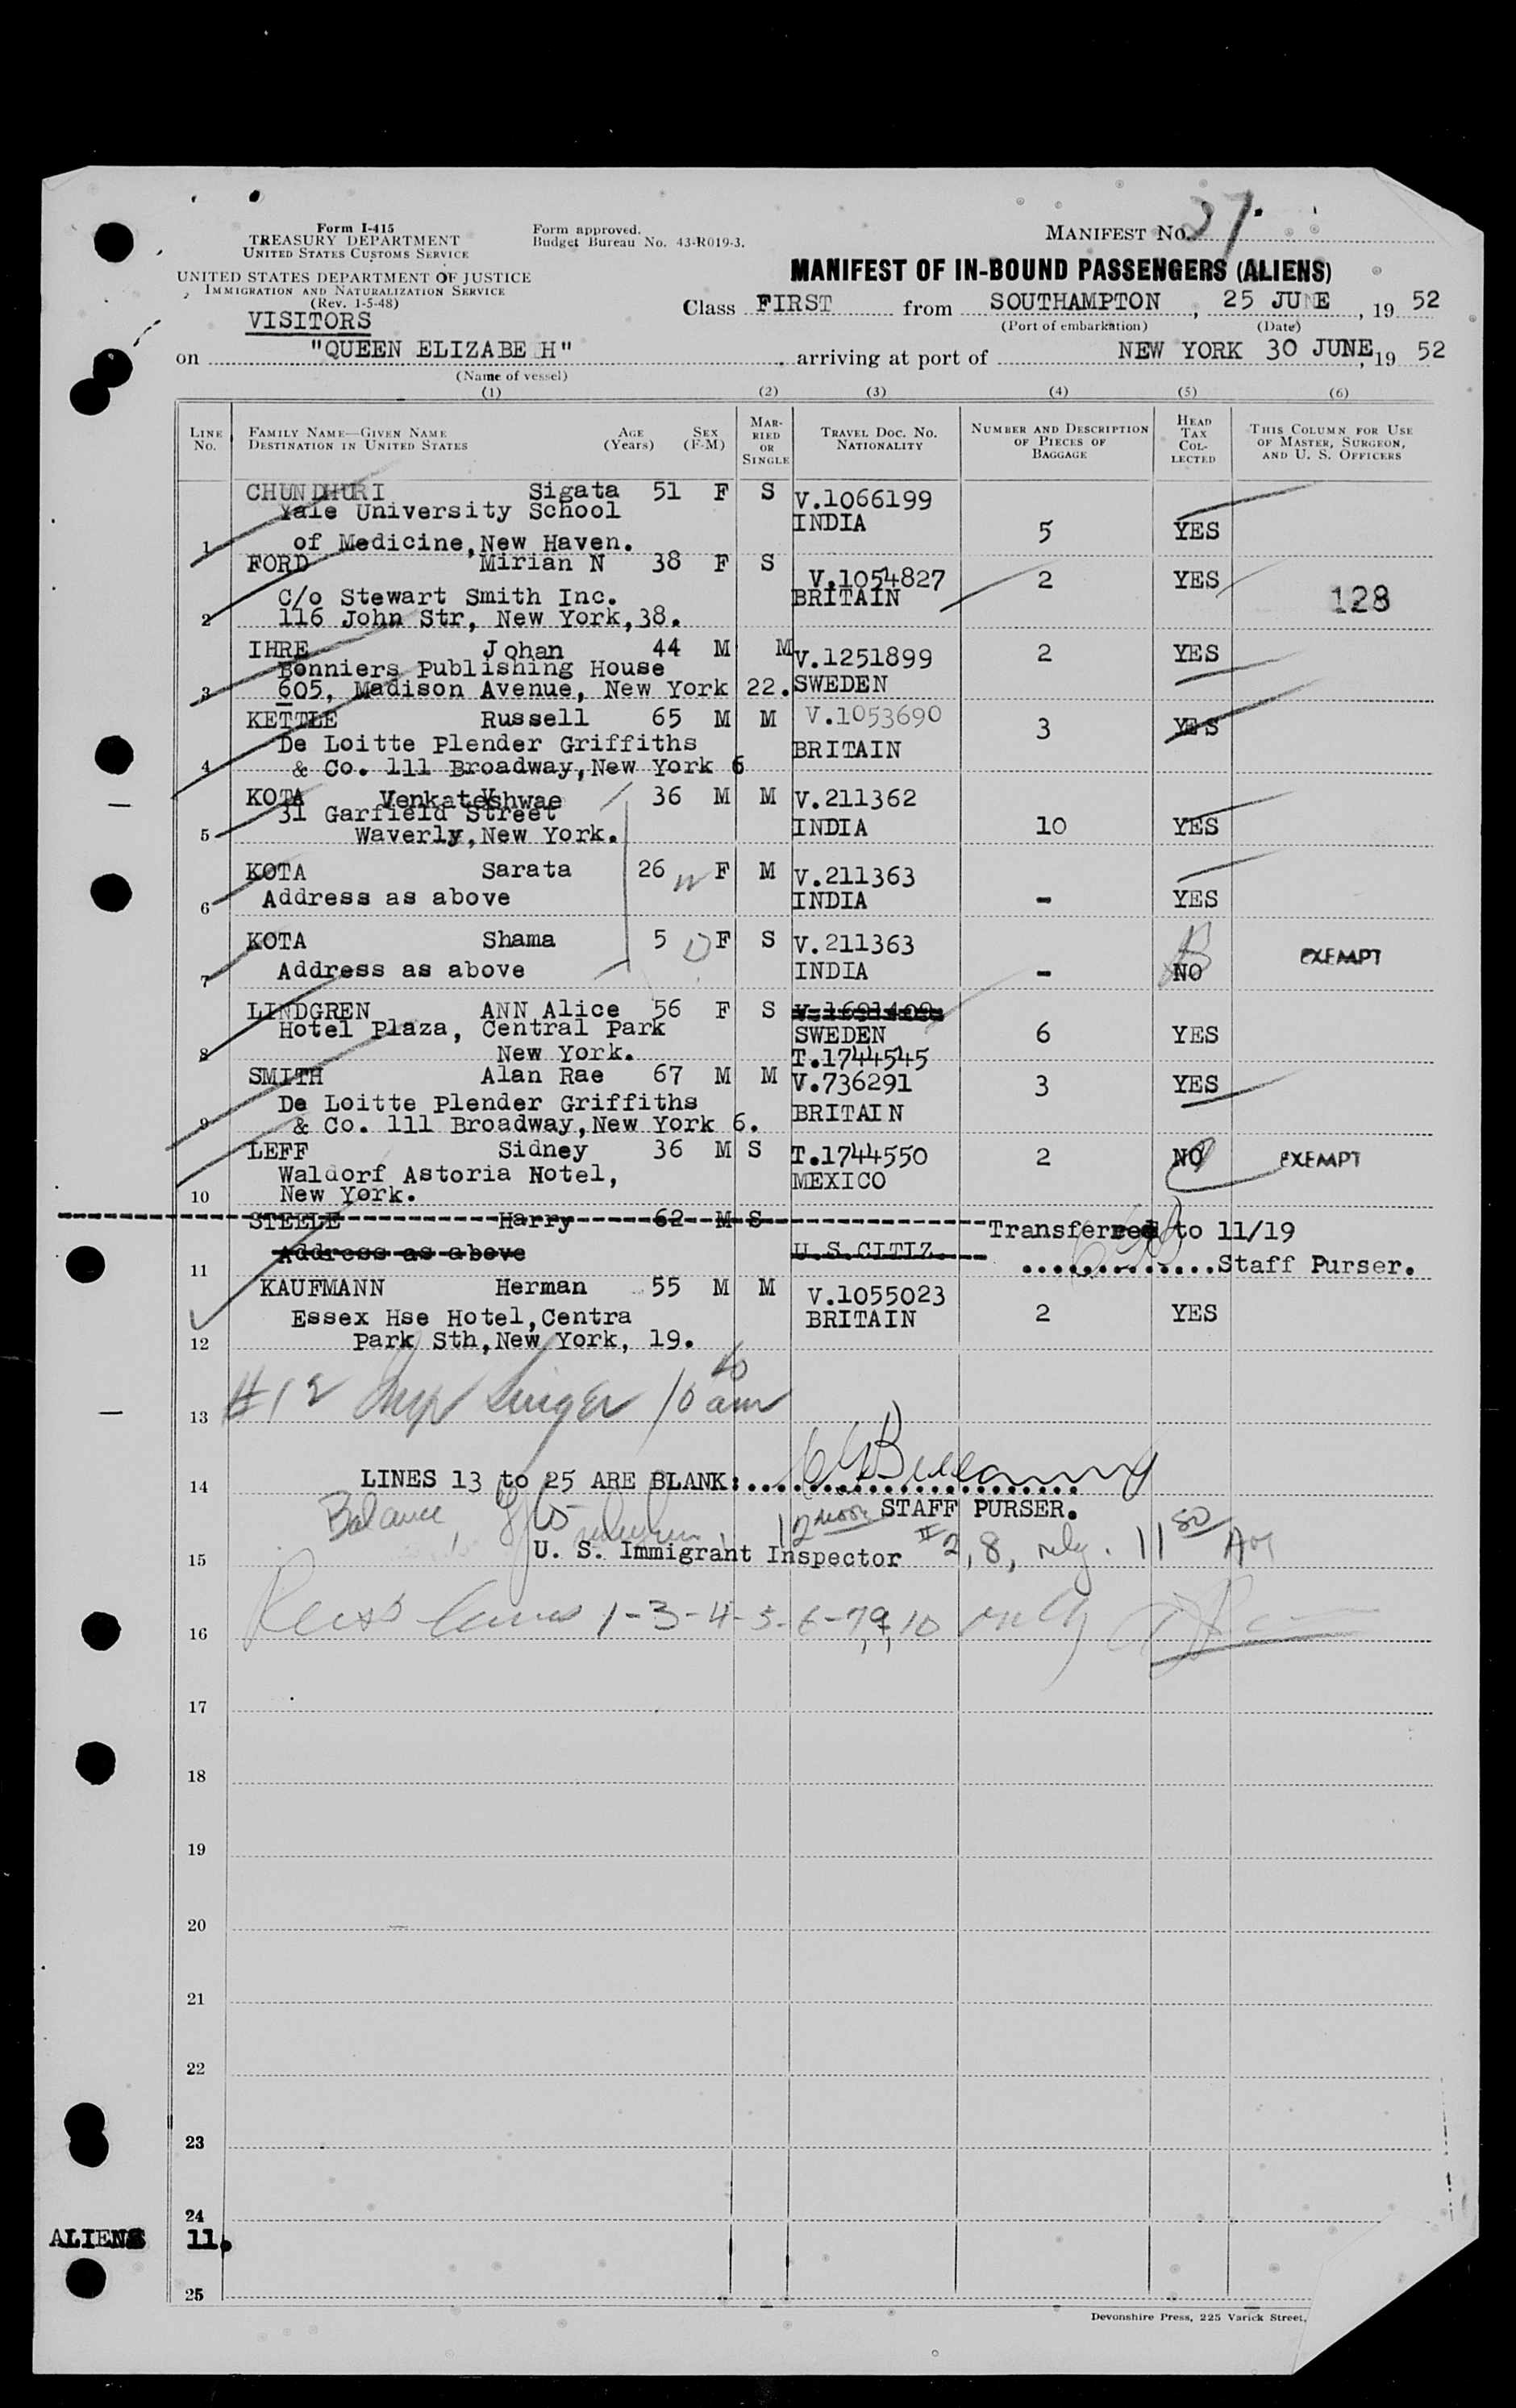 Form I-415
TREASURY DEPARTMENT
UNITED STATES CUSTOMS SERVICE
UNITED STATES DEPARTMENT OF JUSTICE
IMMIGRATION AND NATURALIZATION SERVICE
(Rev. 1-5-48)
VISITORS
Form approved.
Budget Bureau No. 43-R019-3.
MANIFEST NO. 27.
MANIFEST OF IN-BOUND PASSENGERS (ALIENS)
Class FIRST from SOUTHAMPTON, 25 JUNE, 19 52
(Port of embarkation) (Date)
on "QUEEN ELIZABE H" arriving at port of NEW YORK 30 JUNE, 19 52
(Name of vessel)
(1) (2) (3) (4) (5) (6)
LINE NO. FAMILY NAME—GIVEN NAME DESTINATION IN UNITED STATES AGE (Years) SEX (F-M) MARRIED OR SINGLE TRAVEL DOC. NO. NATIONALITY NUMBER AND DESCRIPTION OF PIECES OF BAGGAGE HEAD TAX COLLECTED THIS COLUMN FOR USE OF MASTER, SURGEON, AND U. S. OFFICERS
CHUNDHURI Sigata 51 F S V.1066199
Yale University School INDIA
1 of Medicine, New Haven. 5 YES
FORD Mirian N 38 F S V.1054827 2 YES
C/o Stewart Smith Inc. BRITAIN 128
2 116 John Str, New York, 38.
IHRE Johan 44 M M V.1251899 2 YES
Bonniers Publishing House
3 605, Madison Avenue, New York 22. SWEDEN
KETTLE Russell 65 M M V.1053690 3 YES
De Loitte Plender Griffiths BRITAIN
4 & Co. 111 Broadway, New York 6
KOTA Venkateshwae 36 M M V.211362
31 Garfield Street INDIA 10 YES
5 Waverly, New York.
KOTA Sarata 26 F M V.211363
6 Address as above INDIA - YES
KOTA Shama 5 F S V.211363 EXEMPT
7 Address as above INDIA - NO
LINDGREN ANN Alice 56 F S V.1691409
Hotel Plaza, Central Park SWEDEN 6 YES
8 New York. T.1744545
SMITH Alan Rae 67 M M V.736291 3 YES
De Loitte Plender Griffiths BRITAIN
9 & Co. 111 Broadway, New York 6.
LEFF Sidney 36 M S T.1744550 2 NO EXEMPT
Waldorf Astoria Hotel, MEXICO
10 New York.
STEELE Harry 62 M S Transferred to 11/19
11 Address as above U.S.CITIZ. Staff Purser.
KAUFMANN Herman 55 M M V.1055023
Essex Hse Hotel, Centra BRITAIN 2 YES
12 Park Sth, New York, 19.
13 #12 10 am
14 LINES 13 to 25 ARE BLANK:
STAFF PURSER.
Balance, 12 noon
15 U. S. Immigrant Inspector 2, 8, only. 11 50 AM
16 1-3-4-5-6-7, 9, 10 only
17
18
19
20
21
22
23
24
ALIENS 11.
25
Devonshire Press, 225 Varick Street,